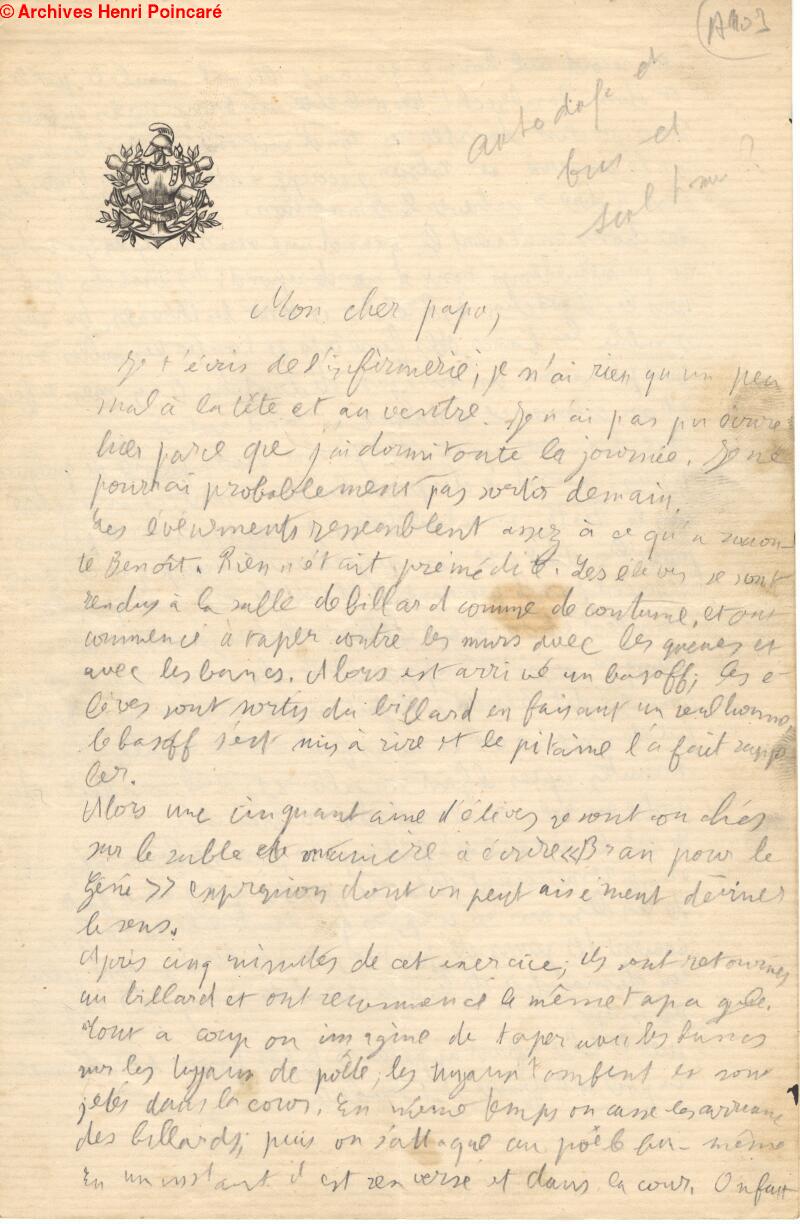 © Archives Henri Poincaré
autodafe et
bus et
Mon cher papa,
Je t'écris de l'infirmerie; je n'ai rien qu'un peu
mal à la tête et au ventre. Je n'ai pas pu écrire
hier parce que j'ai dormi toute la journée. Je ne
pourrai probablement pas sortir demain.
Les événements ressemblent assez à ce qu'a racon-
té Benoît. Rien n'était prémédité. Les élèves se sont
rendus à la salle de billard comme de coutume, et ont
commencé à taper contre les murs avec les queues et
avec les bancs. Alors est arrivé un basoff; les é-
lèves sont sortis du billard en faisant un seul homme,
le basoff s'est mis à rire et le pitaine l'a fait rappe
ler.
Alors une cinquantaine d'élèves se sont couchés
sur le sable de manière à écrire «Bran pour le
Géné» expression dont on peut aisément deviner
le sens.
Après cinq minutes de cet exercice, ils sont retournés
au billard et ont recommencé le même tapage.
Tout a coup on imagine de taper avec les bancs
sur les tuyaux de poêle, les tuyaux tombent et sont
jetés dans la cour. En même temps on casse les
des billards; puis on s'attaque au poêle lui-même
En un instant il est renversé et dans la cour. On fait